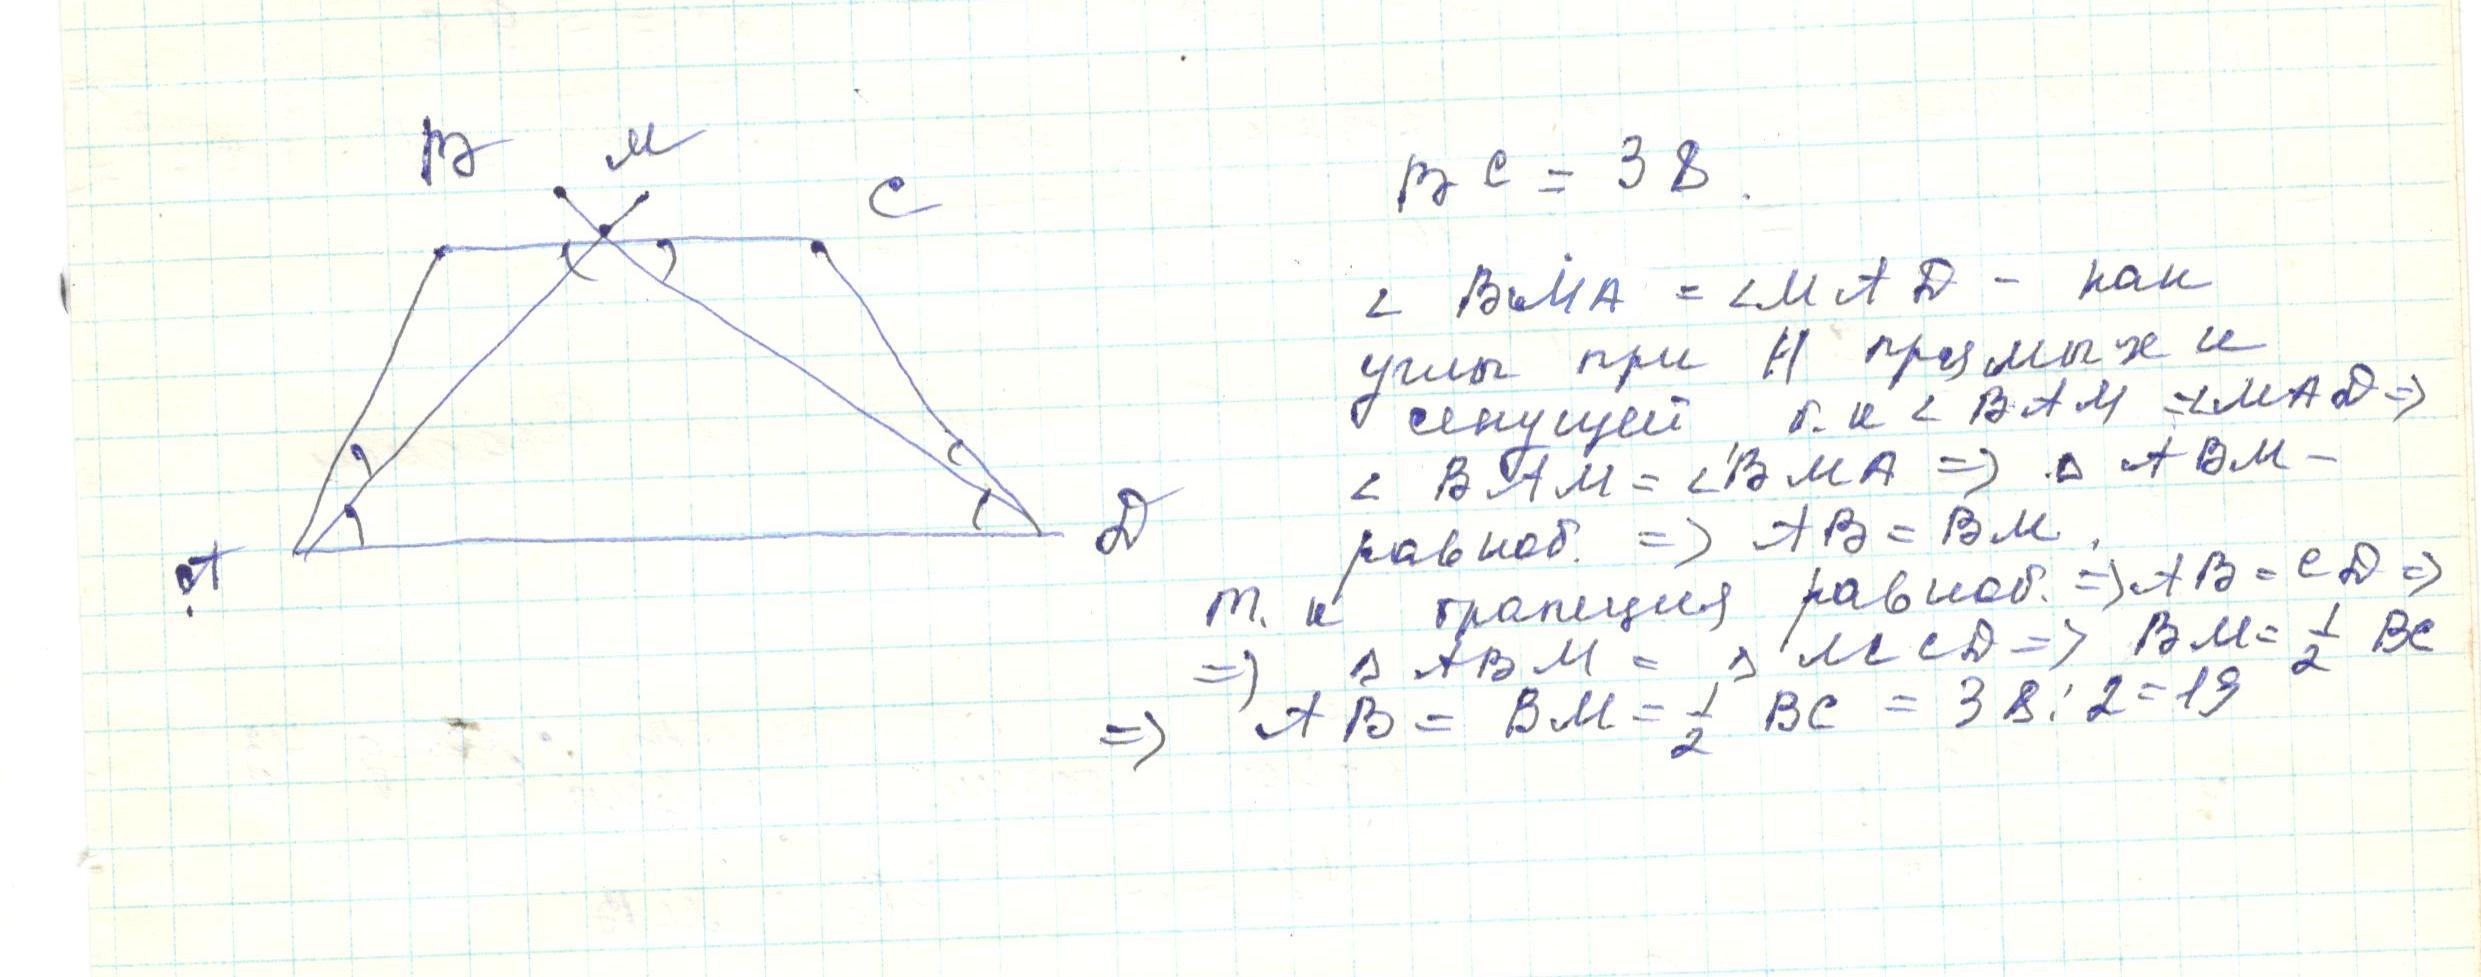 B M
C
A D
BC = 38.
∠ BMA = ∠MAD - как
углы при || прямых и
секущей т.к ∠ BAM = ∠MAD =>
∠ BAM = ∠BMA => Δ ABM -
равноб. => AB = BM.
т.к трапеция равноб. => AB = CD =>
=> Δ ABM = Δ MCD => BM = 1/2 BC
=> AB = BM = 1/2 BC = 38:2=19